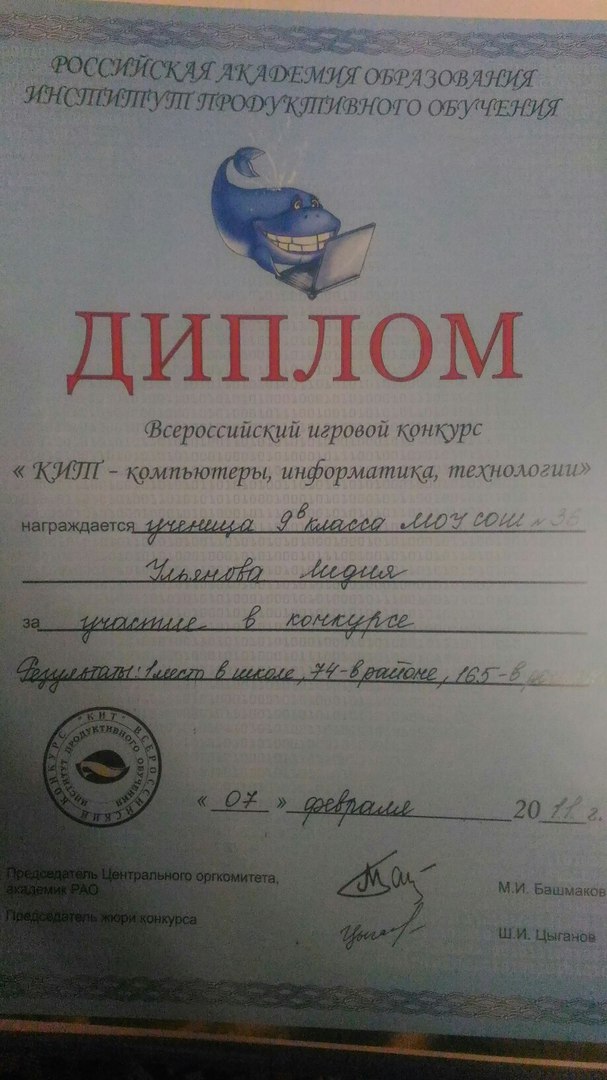 РОССИЙСКАЯ АКАДЕМИЯ ОБРАЗОВАНИЯ
ИНСТИТУТ ПРОДУКТИВНОГО ОБУЧЕНИЯ
ДИПЛОМ
Всероссийский игровой конкурс
« КИТ - компьютеры, информатика, технологии»
награждается ученица 9в класса МОУ СОШ № 36
Ульянова Лидия
за участие в конкурсе
Результаты: 1 место в школе, 74-в районе, 165-в
КОНКУРС "КИТ" ВСЕРОССИЙСКИЙ
ИНСТИТУТ ПРОДУКТИВНОГО ОБУЧЕНИЯ
« 07 » февраля 2011 г.
Председатель Центрального оргкомитета,
академик РАО
М.И. Башмаков
Председатель жюри конкурса
Ш.И. Цыганов